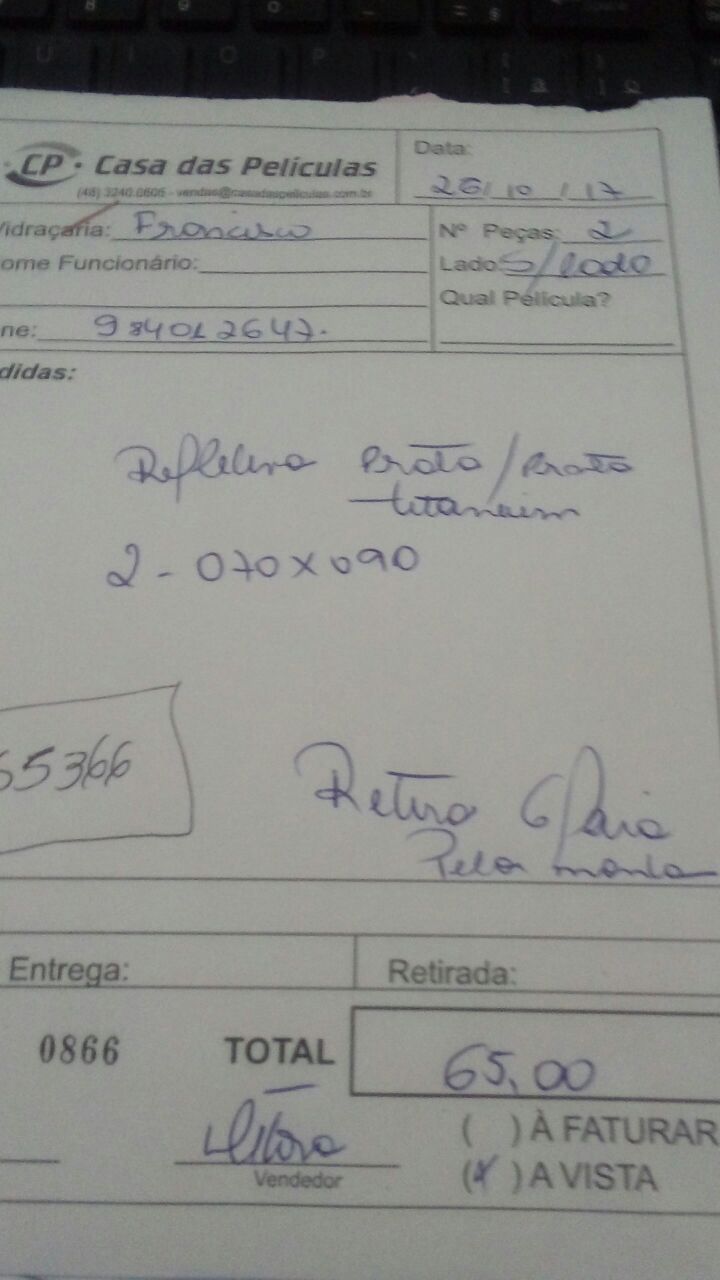 CP · Casa das Películas
(48) 3240.0606 - vendas@casadaspeliculas.com.br
Data:
26/10/17
Vidraçaria: Francisco
Nº Peças: 2
ome Funcionário:
Lado: S/lado
Qual Película?
ne: 984012647.
didas:
Prata/Prata
2 - 070x090
65366
Retira 6/
Pela
Entrega:
Retirada:
0866
TOTAL
65,00
( ) À FATURAR
Vendedor
(X) A VISTA